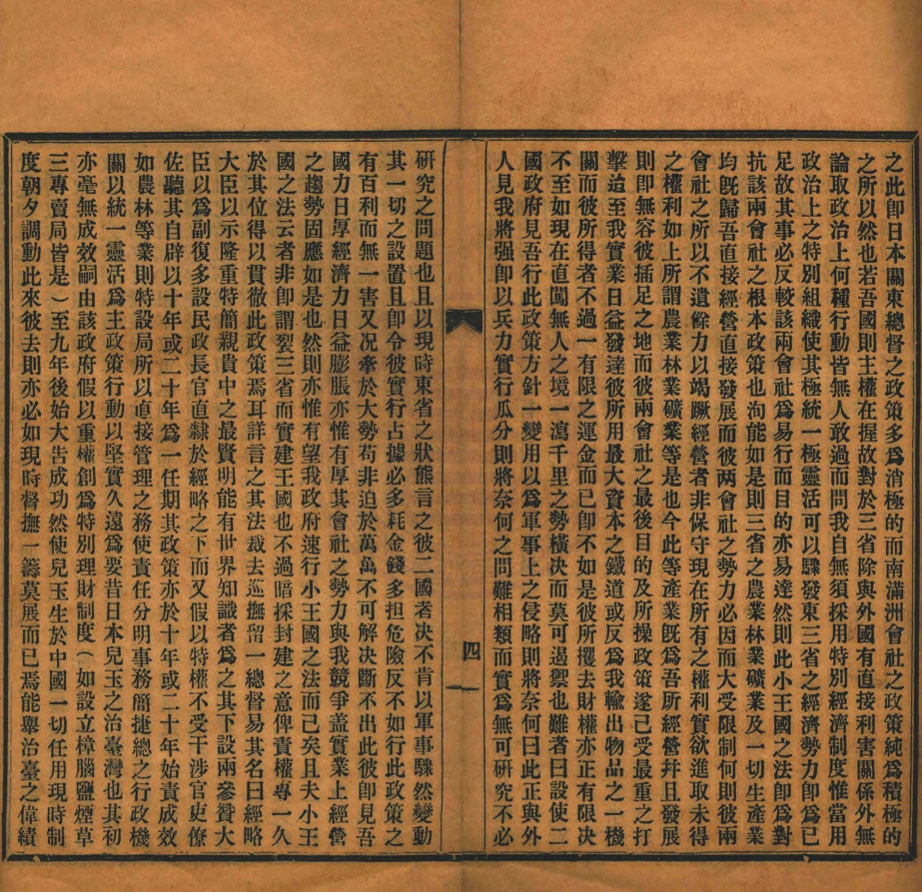 之此卽日本關東總督之政策多爲消極的而南滿洲會社之政策純爲積極的
之所以然也若吾國則主權在握故對於三省除與外國有直接利害關係外無
論取政治上何種行動皆無人敢過而問我自無須採用特別經濟制度惟當用
政治上之特別組織使其極統一極靈活可以驟發東三省之經濟勢力卽爲已
足故其事必反較該兩會社爲易行而目的亦易達然則此小王國之法卽爲對
抗該兩會社之根本政策也洵能如是則三省之農業林業礦業及一切生產業
均旣歸吾直接經營直接發展而彼两會社之勢力必因而大受限制何則彼兩
會社之所以不遺餘力以竭蹶經營者非保守現在所有之權利實欲進取未得
之權利如上所謂農業林業礦業等是也今此等產業旣爲吾所經營幷且發展
則卽無容彼插足之地而彼兩會社之最後目的及所操政策遂已受最重之打
擊迨至我實業日益發達彼所用最大資本之鐵道或反爲我輸出物品之一機
關而彼所得者不過一有限之運金而已卽不如是彼所攫去財權亦正有限決
不至如現在直闖無人之境一瀉千里之勢橫決而莫可遏禦也難者曰設使二
國政府見吾行此政策方針一變用以爲軍事上之侵略則將奈何曰此正與外
人見我將强卽以兵力實行瓜分則將奈何之問難相類而實爲無可硏究不必
四
硏究之問題也且以現時東省之狀態言之彼二國者決不肯以軍事驟然變動
其一切之設置且卽令彼實行占據必多耗金錢多担危險反不如行此政策之
有百利而無一害又况牽於大勢苟非迫於萬萬不可解決斷不出此彼卽見吾
國力日厚經濟力日益膨脹亦惟有厚其會社之勢力與我競爭盖實業上經營
之趨勢固應如是也然則亦惟有望我政府速行小王國之法而已矣且夫小王
國之法云者非卽謂裂三省而實建王國也不過暗採封建之意俾責權專一久
於其位得以貫徹此政策焉耳詳言之其法裁去巡撫留一總督易其名曰經略
大臣以示隆重特簡親貴中之最賢明能有世界知識者爲之其下設兩參贊大
臣以爲副復多設民政長官直隸於經略之下而又假以特權不受干涉官吏僚
佐聽其自辟以十年或二十年爲一任期其政策亦於十年或二十年始責成效
如農林等業則特設局所以直接管理之務使責任分明事務簡捷總之行政機
關以統一靈活爲主政策行動以堅實久遠爲要昔日本兒玉之治臺灣也其初
亦毫無成效嗣由該政府假以重權創爲特別理財制度（如設立樟腦鹽煙草
三專賣局皆是）至九年後始大告成功然使兒玉生於中國一切任用現時制
度朝夕調動此來彼去則亦必如現時督撫一籌莫展而已焉能舉治臺之偉績